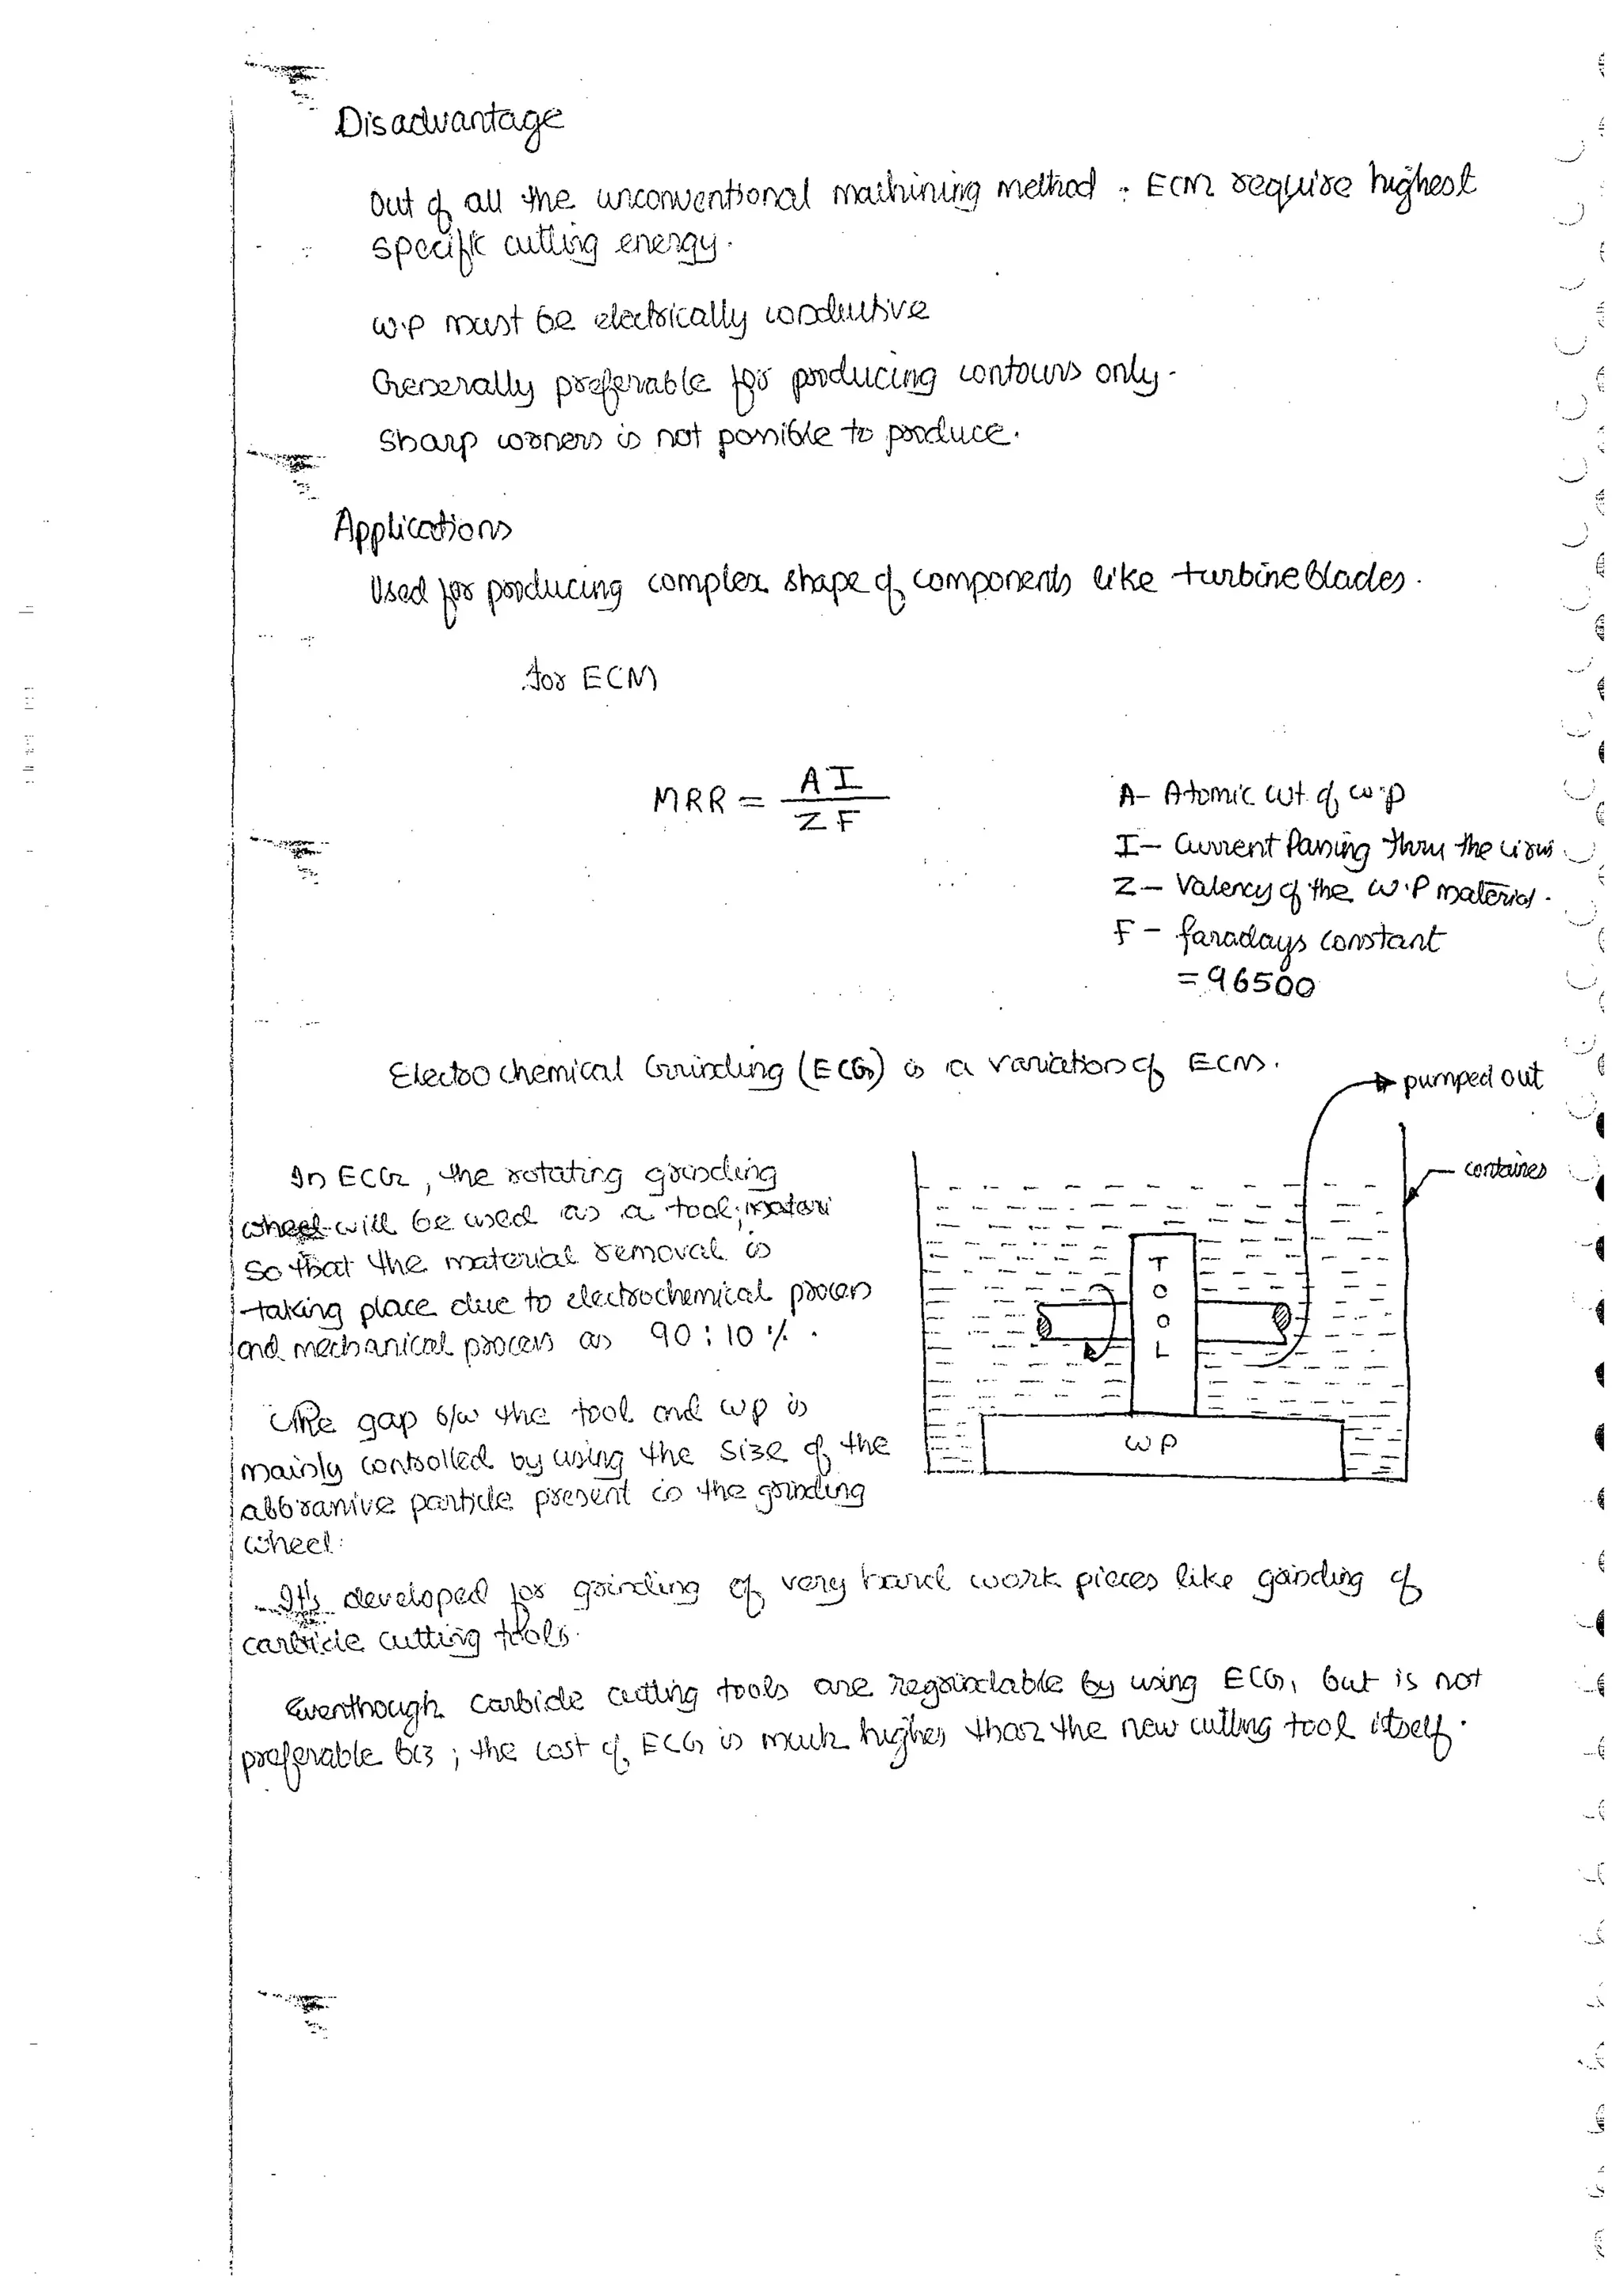 Disadvantage
Out of all the unconventional machining method : ECM require highest
specific cutting energy.
W.P must be electrically conductive
Generally preferable for producing contours only.
Sharp corners is not possible to produce.
Applications
Used for producing complex shape of components like turbine blades.
for ECM
MRR = AI / ZF
A- Atomic wt. of w.p
I- Current Passing thru the
Z- Valency of the W.P material.
F - faradays constant
= 96500
Electro chemical Grinding (ECG) is a variation of ECM.
pumped out
container
In ECG, the rotating grinding
wheel will be used as a tool;
so that the material removal is
taking place due to electrochemical process
and mechanical process as 90 : 10 %.
TOOL
WP
The gap b/w the tool and wp is
mainly controlled by using the size of the
abbrassive particle present in the grinding
wheel.
It's developed for grinding of very hard work pieces like grinding of
carbide cutting tools.
Eventhough carbide cutting tools are regrindable by using ECG, but is not
preferable bcz ; the cost of ECG is much higher than the new cutting tool itself.